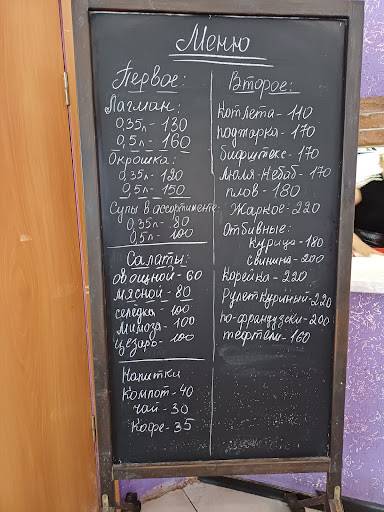 Меню
Первое:
Лагман:
0,35л - 130
0,5л - 160
Окрошка:
0,35л - 120
0,5л - 150
Супы в ассортименте:
0,35л - 80
0,5л - 100
Салаты:
овощной - 60
мясной - 80
селедка - 100
Мимоза - 100
Цезарь - 100
Напитки
Компот - 40
чай - 30
Кофе - 35
Второе:
Котлета - 110
поджарка - 170
бифштекс - 170
Люля-Кебаб - 170
плов - 180
Жаркое - 220
Отбивные:
курица - 180
свинина - 200
Корейка - 220
Рулет куриный - 220
по-французски - 200
тефтели - 160